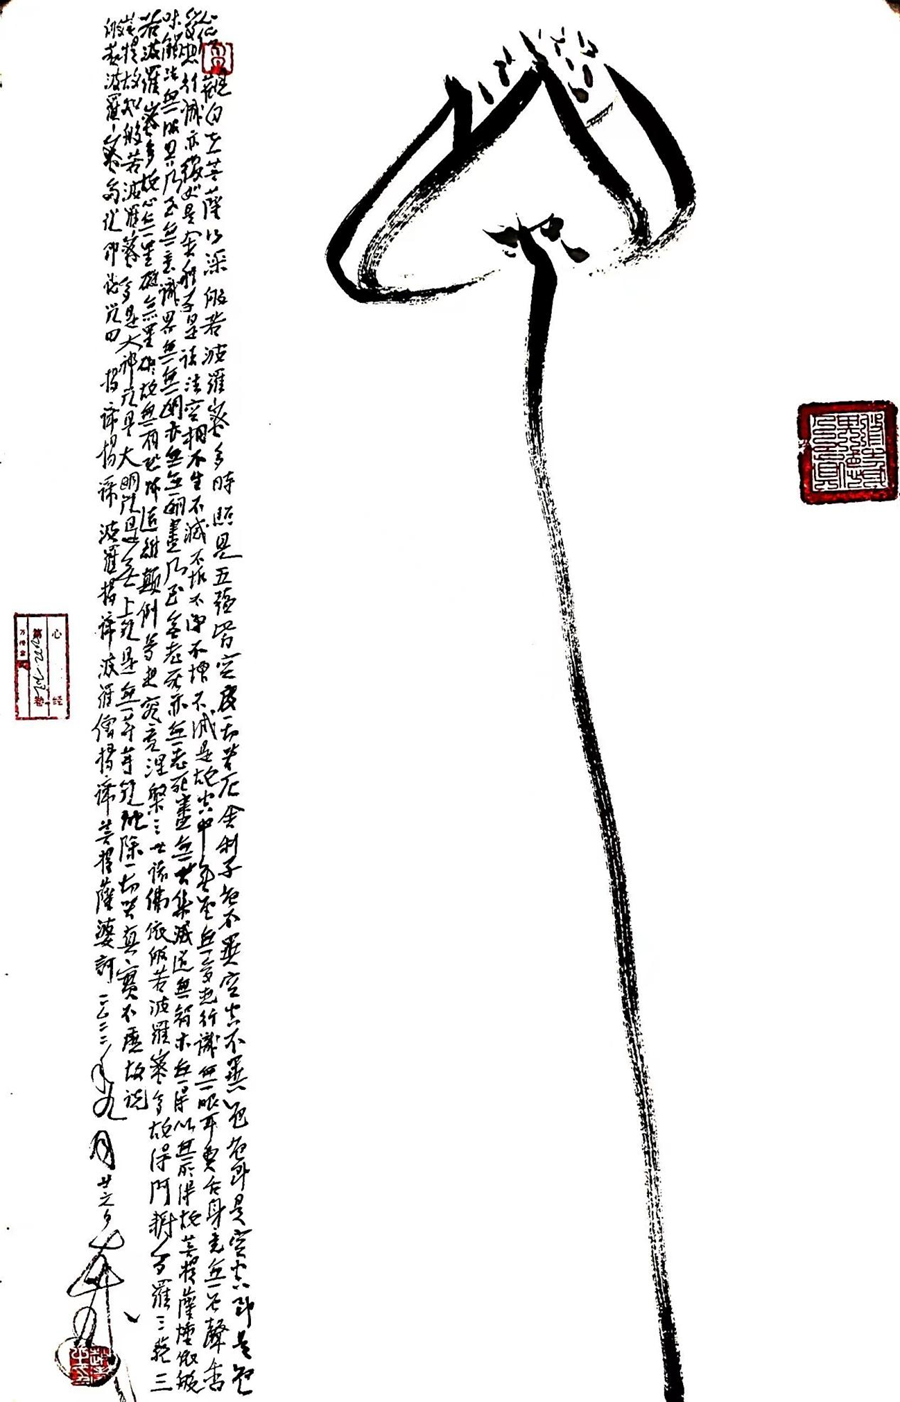 心经
觀自在菩薩行深般若波羅蜜多時照見五蕴皆空度一切苦厄舍利子色不異空空不異色色即是空空即是色
受想行識亦復如是舍利子是诸法空相不生不滅不垢不净不增不减是故空中無色無受想行識無眼耳鼻舌身意無色聲香
味觸法無眼界乃至無意識界無無明亦無無明盡乃至無老死亦無老死盡無苦集滅道無智亦無得以無所得故菩提薩埵依般
若波羅蜜多故心無罣礙無罣礙故無有恐怖遠離顛倒夢想究竟涅槃三世诸佛依般若波羅蜜多故得阿耨多羅三藐三
菩提故知般若波羅蜜多是大神咒是大明咒是無上咒是無等等咒能除一切苦真實不虚故说
般若波羅蜜多咒即说咒曰揭谛揭谛波羅揭谛波羅僧揭谛菩提薩婆訶二〇二二年九月廿六日
心经